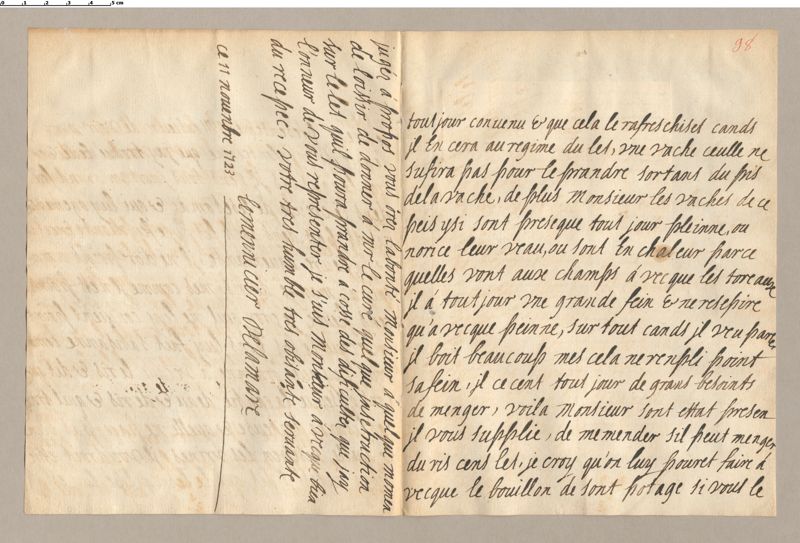 98
tout jour convenu & que cela le rafreschises cands
jl En cera au regime du les, vne vache ceulle ne
sufira pas pour le prandre sortans du pis
de la vache, de plus monsieur les vaches de ce
peis ysi sont preseque tout jour pleinne, ou
norice leur veau, ou sont En chaleur parce
quelles vont aux champs à vecque les toreaux
jl à tout jour vne grande fein & ne resepire
qu'a vecque peinne, sur tout cands jl veu parer
jl boit beaucoup mes cela ne renpli point
sa fein, jl ce cent tous jour de grans besoints
de menger, voila monsieur sont ettat presen
jl vous supplie, de me mender sil peut menger
du ris cens les, je croy qu'on luy pouret faire à
vecque le bouillon de sont potage si vous le
jugéz à propos vous oréz la bonté monsieur à quelque momen
de loisir de donner à mr le curé quelque jnsetruction
sur le les quil poura prandre à cosse du dificultés, que jay
l'onneur de vous representer je suis monsieur à vecque bien
du recepec, votre tres humble tres obisante servante
ce 11 novenbre 1723
lemennicier Delamare